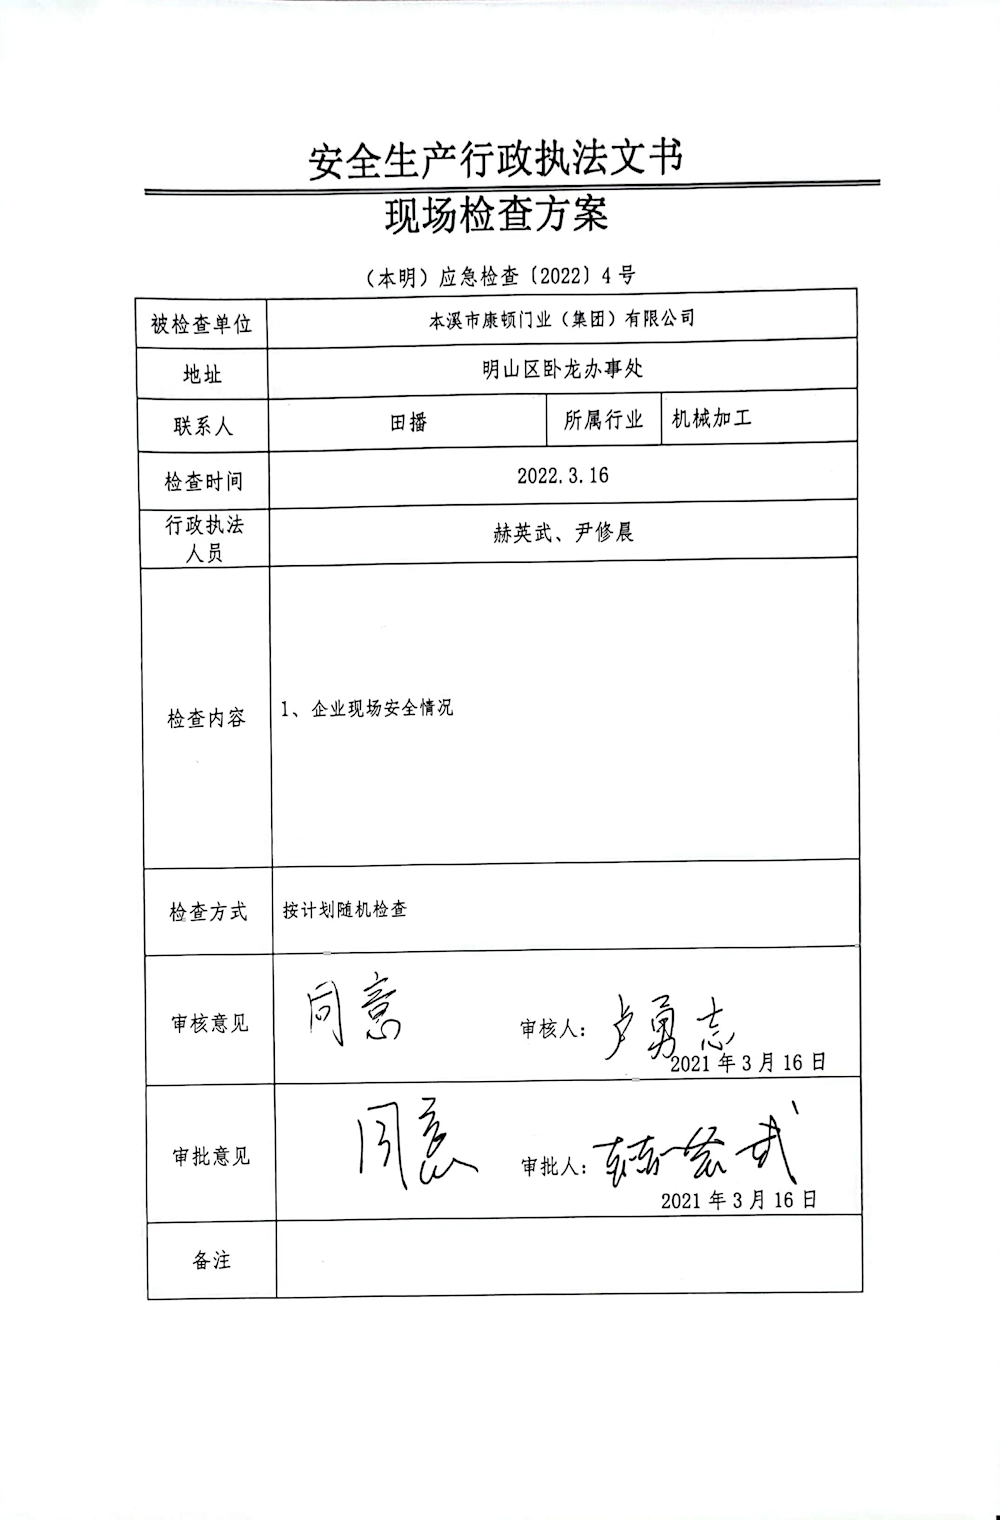 安全生产行政执法文书
现场检查方案
（本明）应急检查〔2022〕4号
被检查单位 本溪市康顿门业（集团）有限公司
地址 明山区卧龙办事处
联系人 田播 所属行业 机械加工
检查时间 2022.3.16
行政执法
人员 赫英武、尹修晨
检查内容 1、企业现场安全情况
检查方式 按计划随机检查
审核意见 同意 审核人：卢勇志
2021年3月16日
审批意见 同意 审批人：赫英武
2021年3月16日
备注